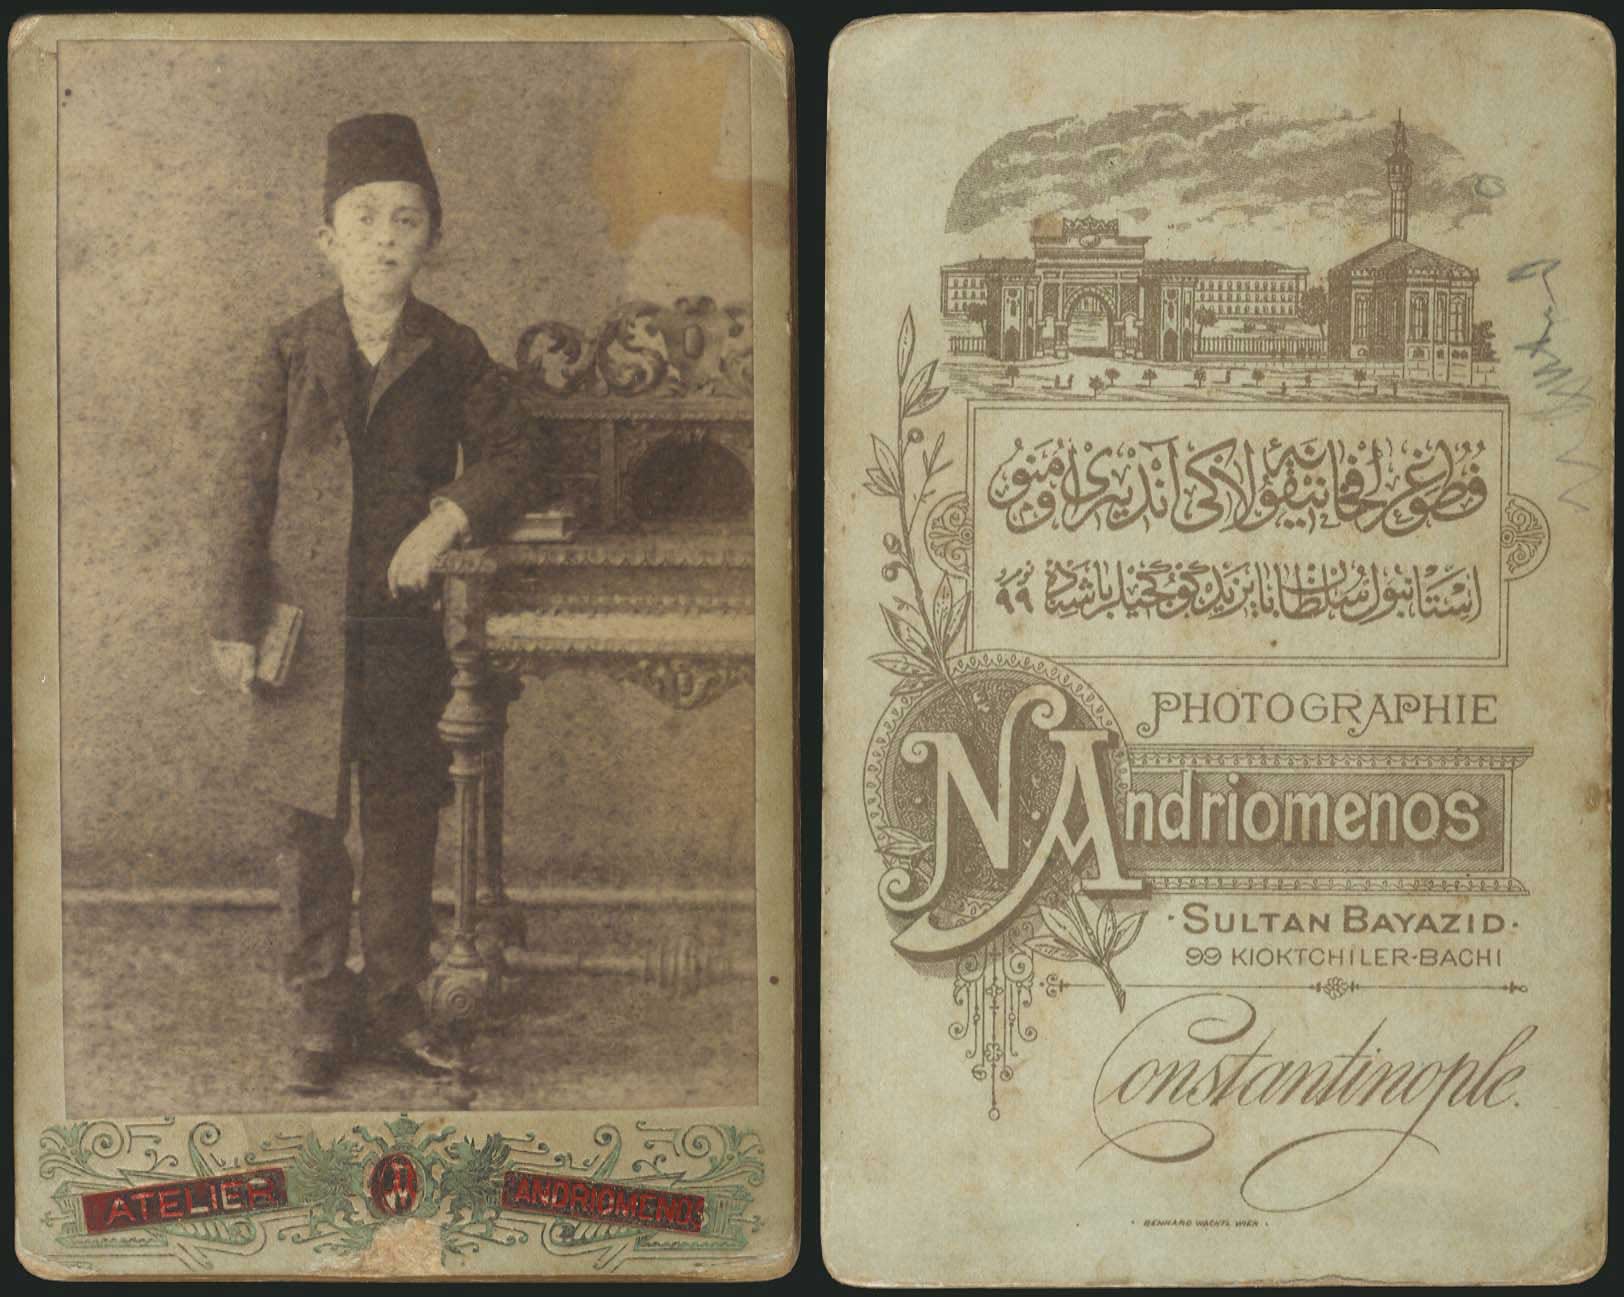 ATELIER ANDRIOMENOS
فطوغرافخانه نيقولاكى آندريومنو
استانبول سلطان بايزيد كوكجيلر باشنده نومرو ٩٩
PHOTOGRAPHIE
N. Andriomenos
· SULTAN BAYAZID ·
99 KIOKTCHILER-BACHI
Constantinople.
· BERNHARD WACHTL WIEN ·